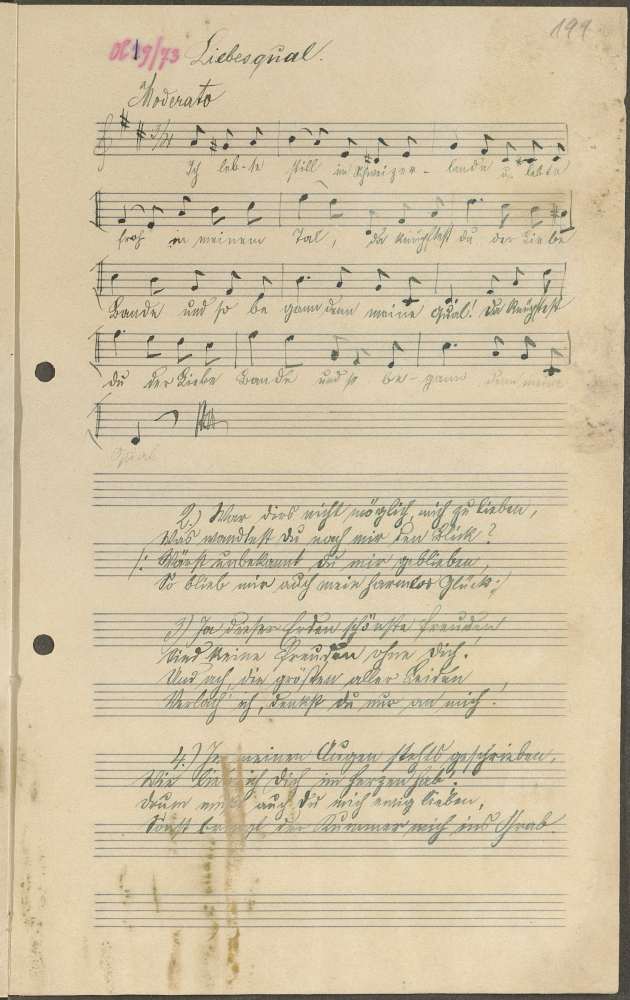 191.
DC 19/73 Liebesqual.
Moderato
3/4
Ich leb-te still im Schweizer-lande u. lebte
froh in meinem Tal, da knüpftest du der Liebe
Bande und so be gann denn meine Qual! Da knüpftest
du der Liebe Bande und so be-gann denn meine
Qual
2.) War dirs nicht möglich, mich zu lieben,
Was wandtest Du nach mir den Blick?
/: Wärst unbekannt Du mir geblieben,
So blieb mir auch mein harmlos Glück :/
3) Ja dieser Erden schönste Freuden
Sind keine Freuden ohne Dich.
Und ach, die größten aller Leiden
Verlach' ich, denkst Du nur an mich.
4.) In meinen Augen stehts geschrieben,
Wie lieb ich Dich im Herzen hab'.
Drum mußt auch Du mich ewig lieben,
Sonst bringt der Kummer mich ins Grab.